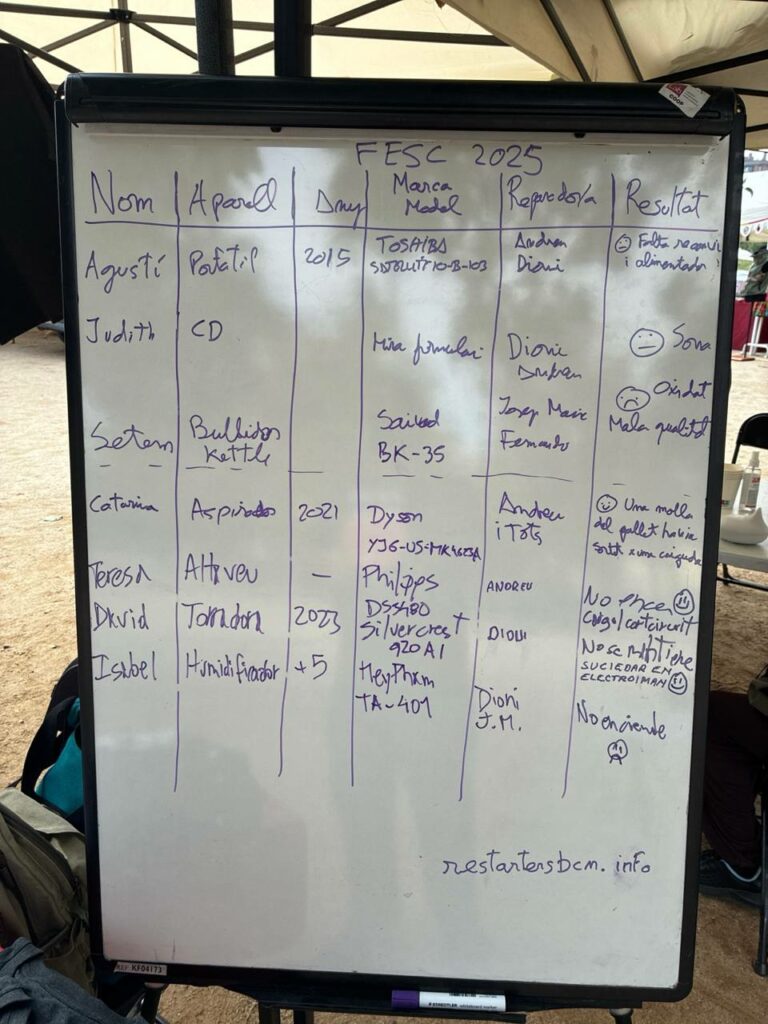 FESC 2025
Nom Aparell Any Marca Model Reparador/a Resultat
Agustí Portàtil 2015 TOSHIBA Andreu Dioni Falta
i alimentador
Judith CD Mira formulari Dioni Andreu Sona
Setem Bullidor Kettle BK-35 Josep Maria Fernando Oxidat
Mala qualitat
Catarina Aspirador 2021 Dyson Andreu i Tots Una molla
del gallet havia
sortit x una caiguda
Teresa Altaveu — Philips DSS480 ANDREU No encen
David Torradora 2023 Silvercrest 920A1 DIONI No se mantiene
SUCIEDAD EN
ELECTROIMAN
Isabel Humidificador +5 HeyPham TA-401 Dioni J.M. No enciende
restartersbcn.info
REF KF04173
STAEDTLER